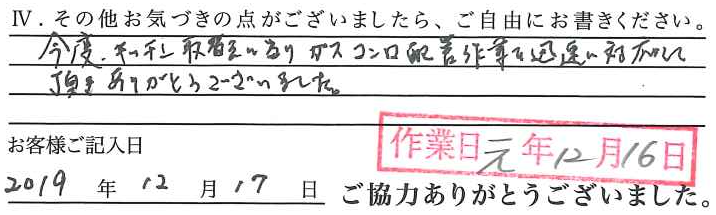 Ⅳ．その他お気づきの点がございましたら、ご自由にお書きください。
今度、キッチン取替えに当り ガスコンロ配管作業を迅速に対応して
頂きありがとうございました。
お客様ご記入日
作業日元年12月16日
2019 年 12 月 17 日 ご協力ありがとうございました。